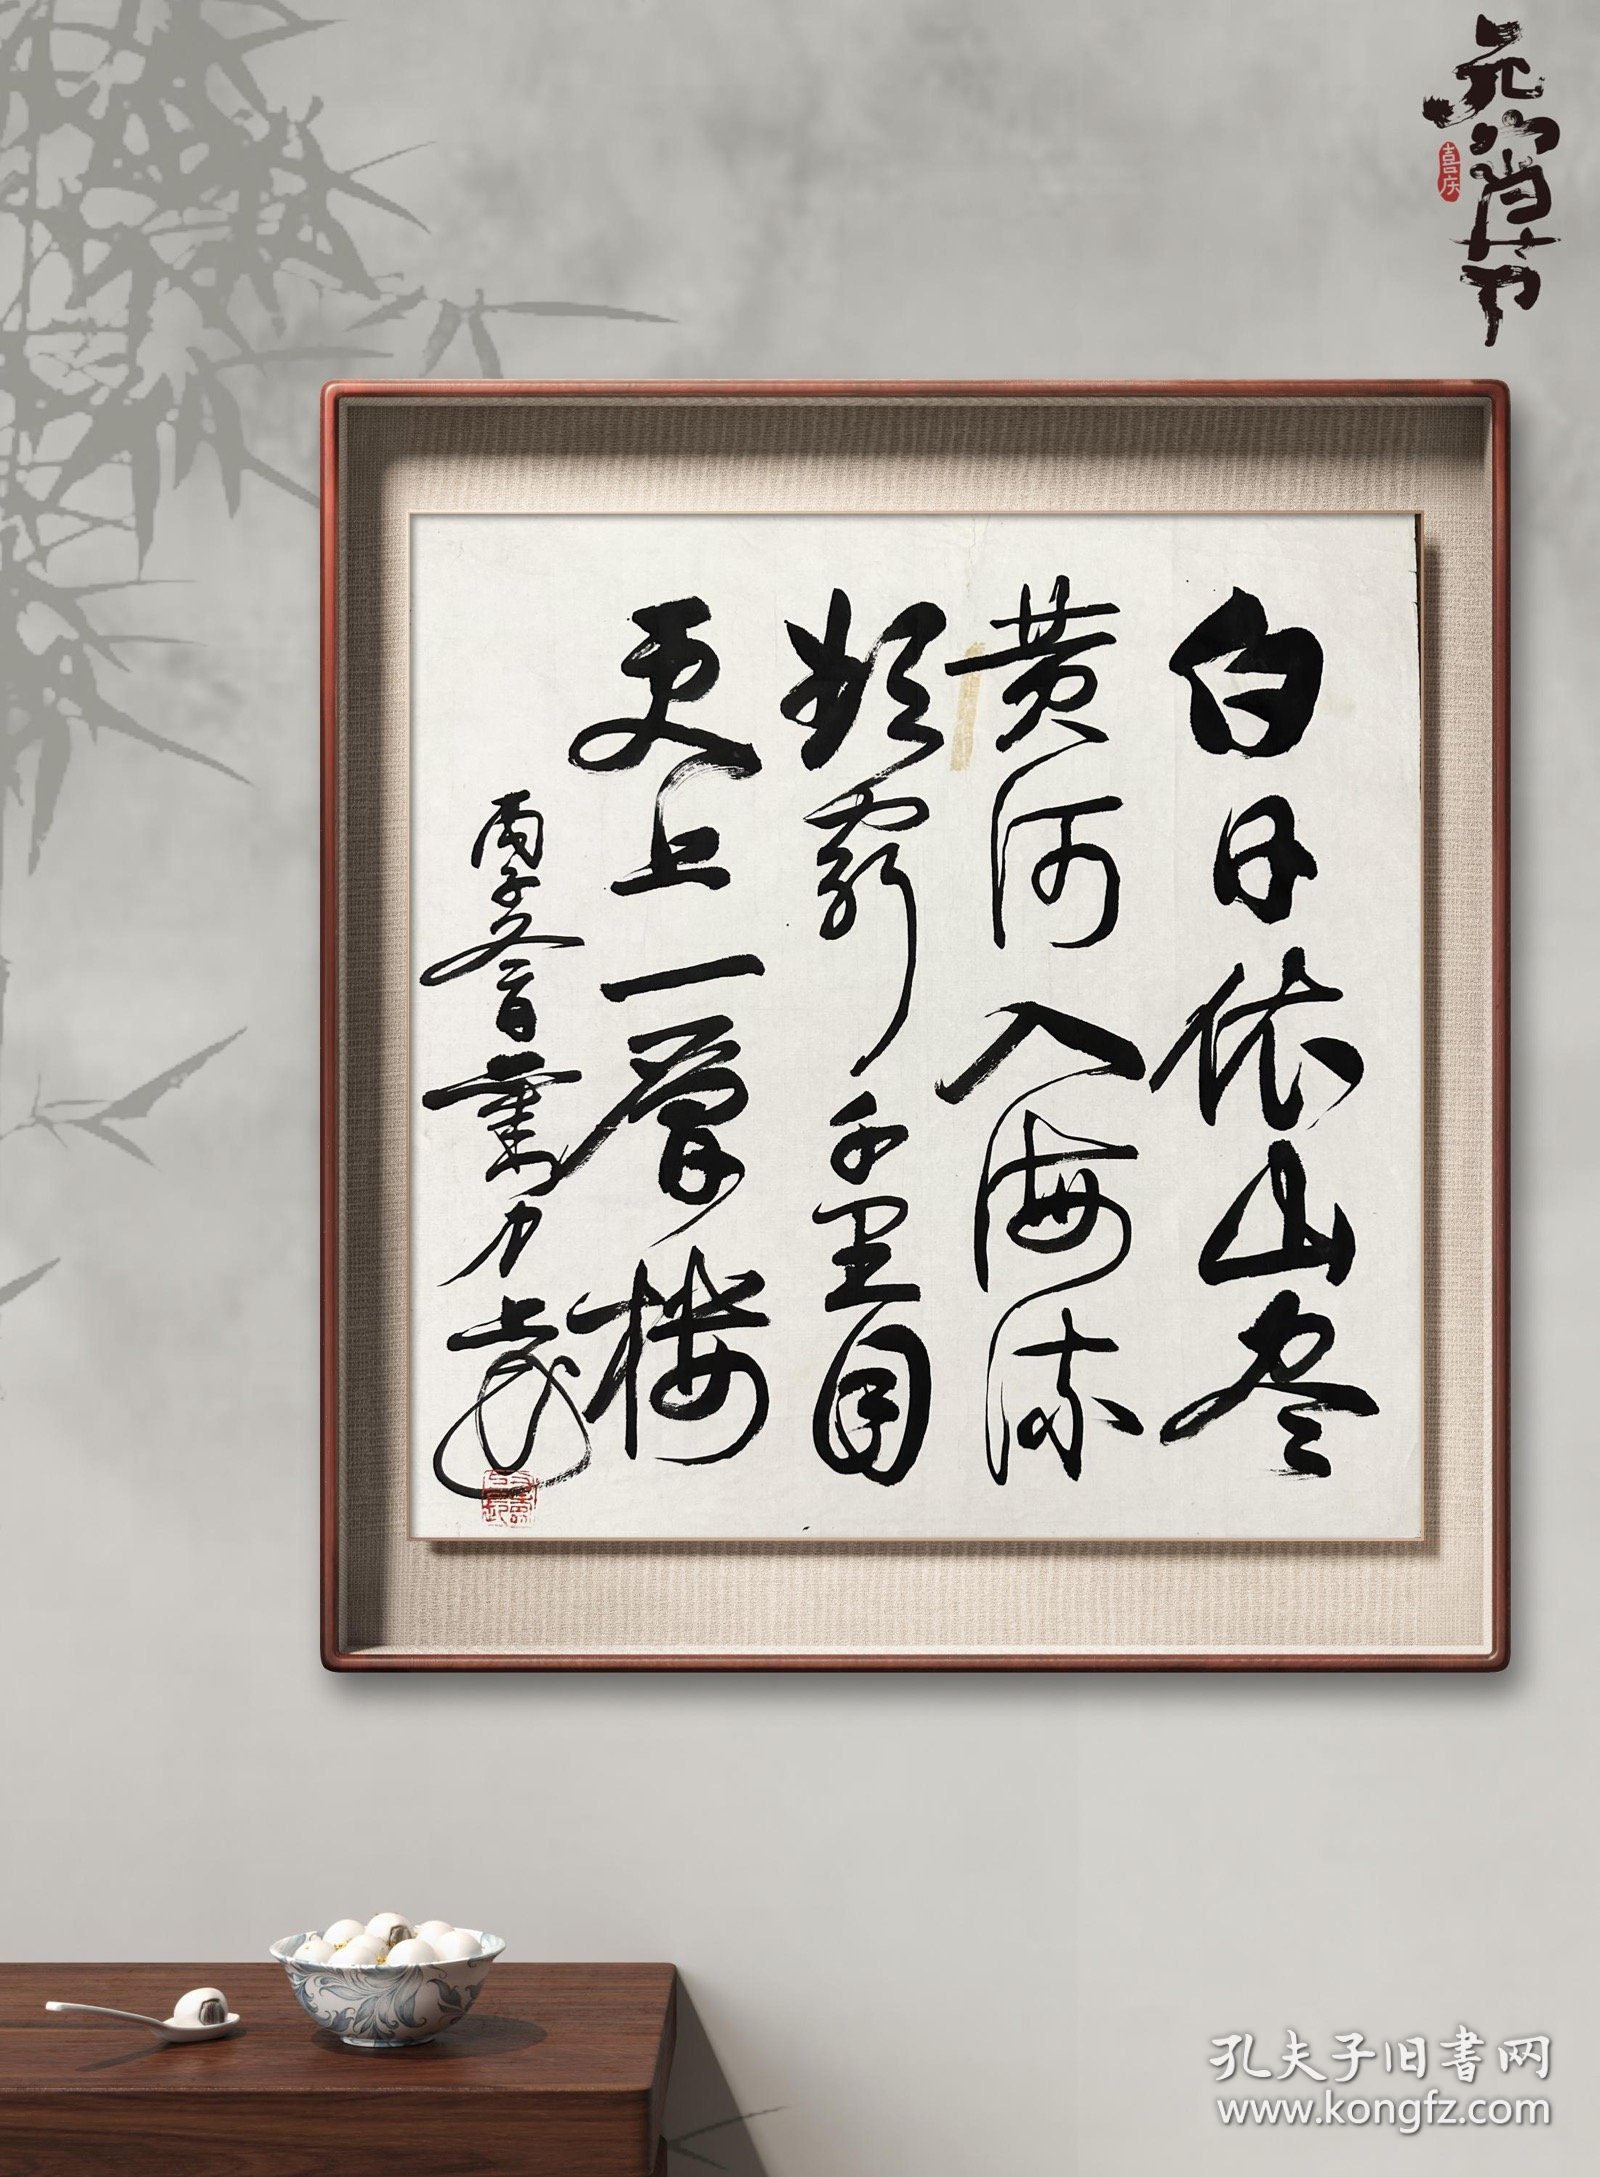 元宵节
喜庆
白日依山尽
黄河入海流
欲穷千里目
更上一层楼
丙子冬月
孔夫子旧书网
www.kongfz.com